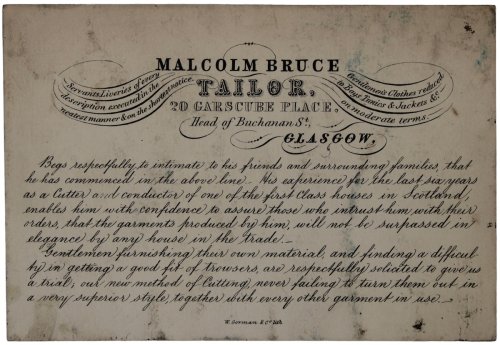 MALCOLM BRUCE
Servants Liveries of every
description executed in the
neatest manner & on the shortest notice.
TAILOR,
Gentlemen's Clothes reduced
to Boys Tunics & Jackets &c.
on moderate terms.
20 GARSCUBE PLACE,
Head of Buchanan St.
GLASGOW,
Begs respectfully to intimate to his friends and surrounding families, that
he has commenced in the above line. His experience for the last six years
as a Cutter and conductor of one of the first Class houses in Scotland,
enables him with confidence to assure those who intrust him with their
orders, that the garments produced by him, will not be surpassed in
elegance by any house in the trade._
Gentlemen furnishing their own material, and finding a difficul-
ty in getting a good fit of trowsers, are respectfully solicited to give us
a trial; our new method of Cutting never failing to turn them out in
a very superior style, together with every other garment in use._
W. Gorman & Co. lith.